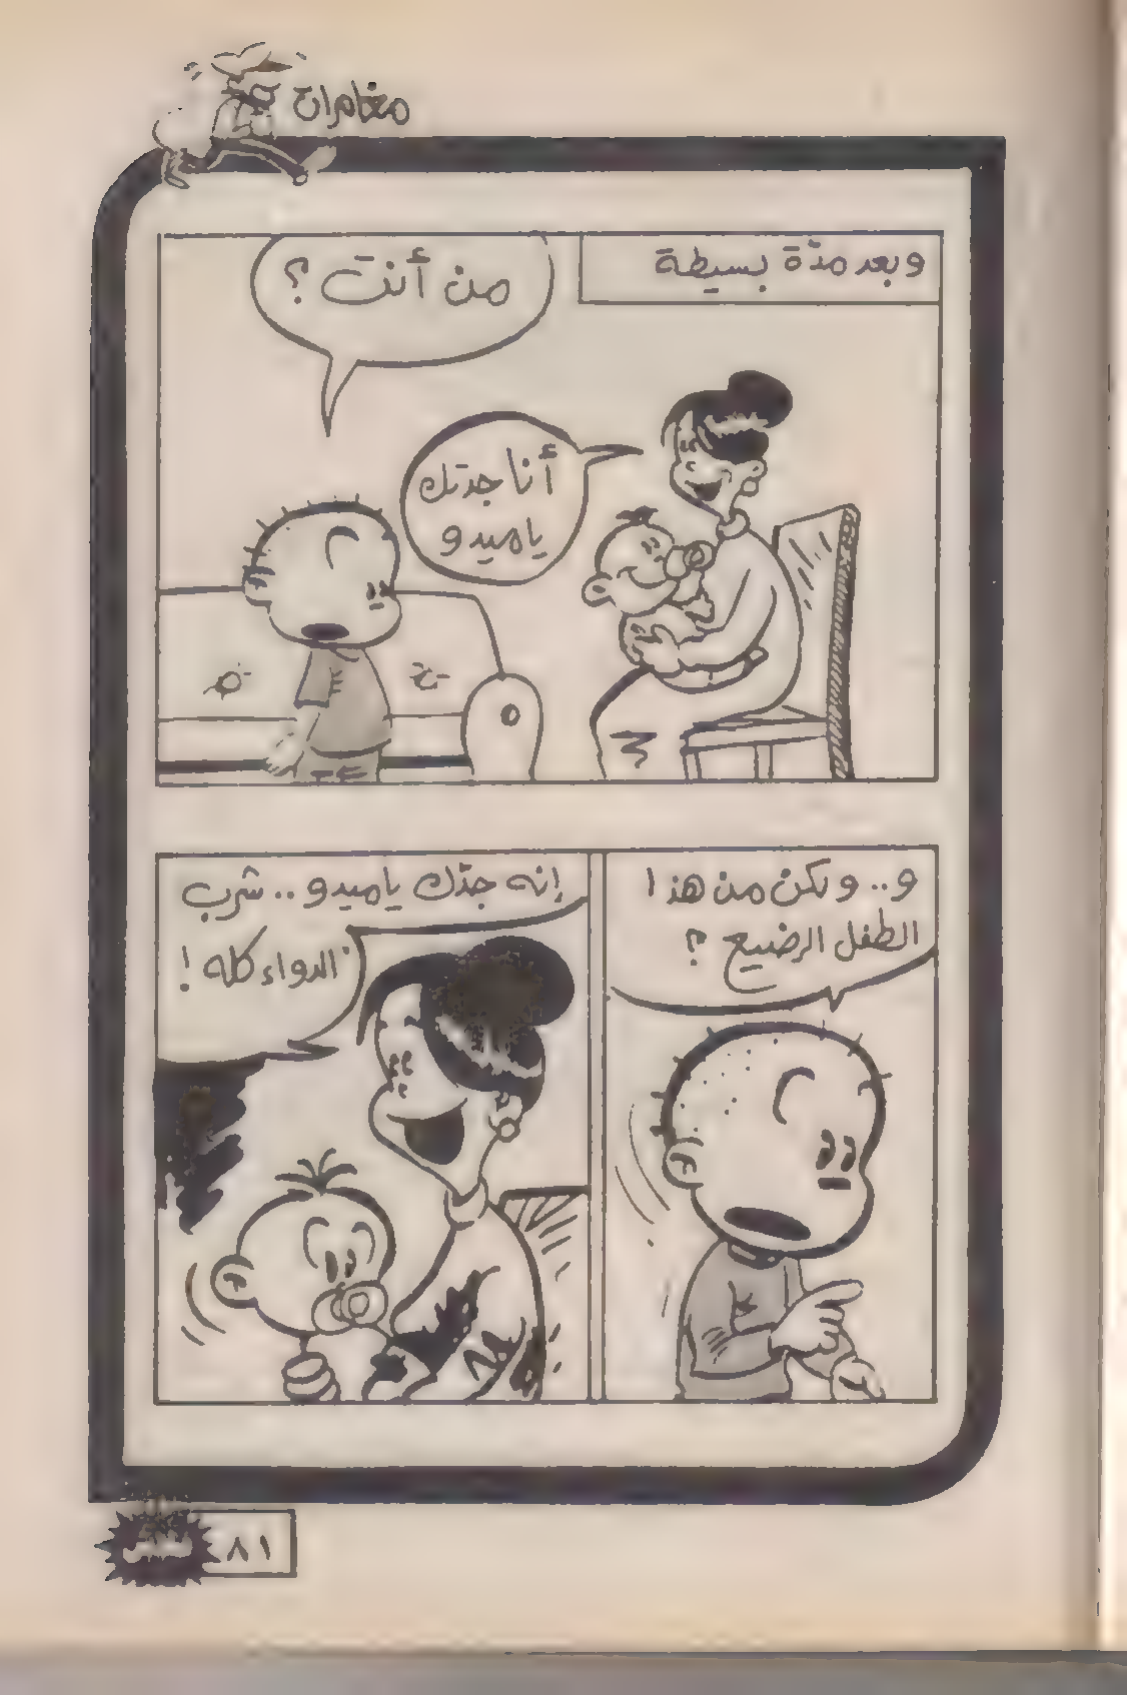 مغامرات
وبعد مدّة بسيطة
من أنت ؟
أنا جدتك
يا ميدو
و.. ولكن من هذا
الطفل الرضيع ؟
إنه جدّك يا ميدو .. شرب
الدواء كله !
٨١